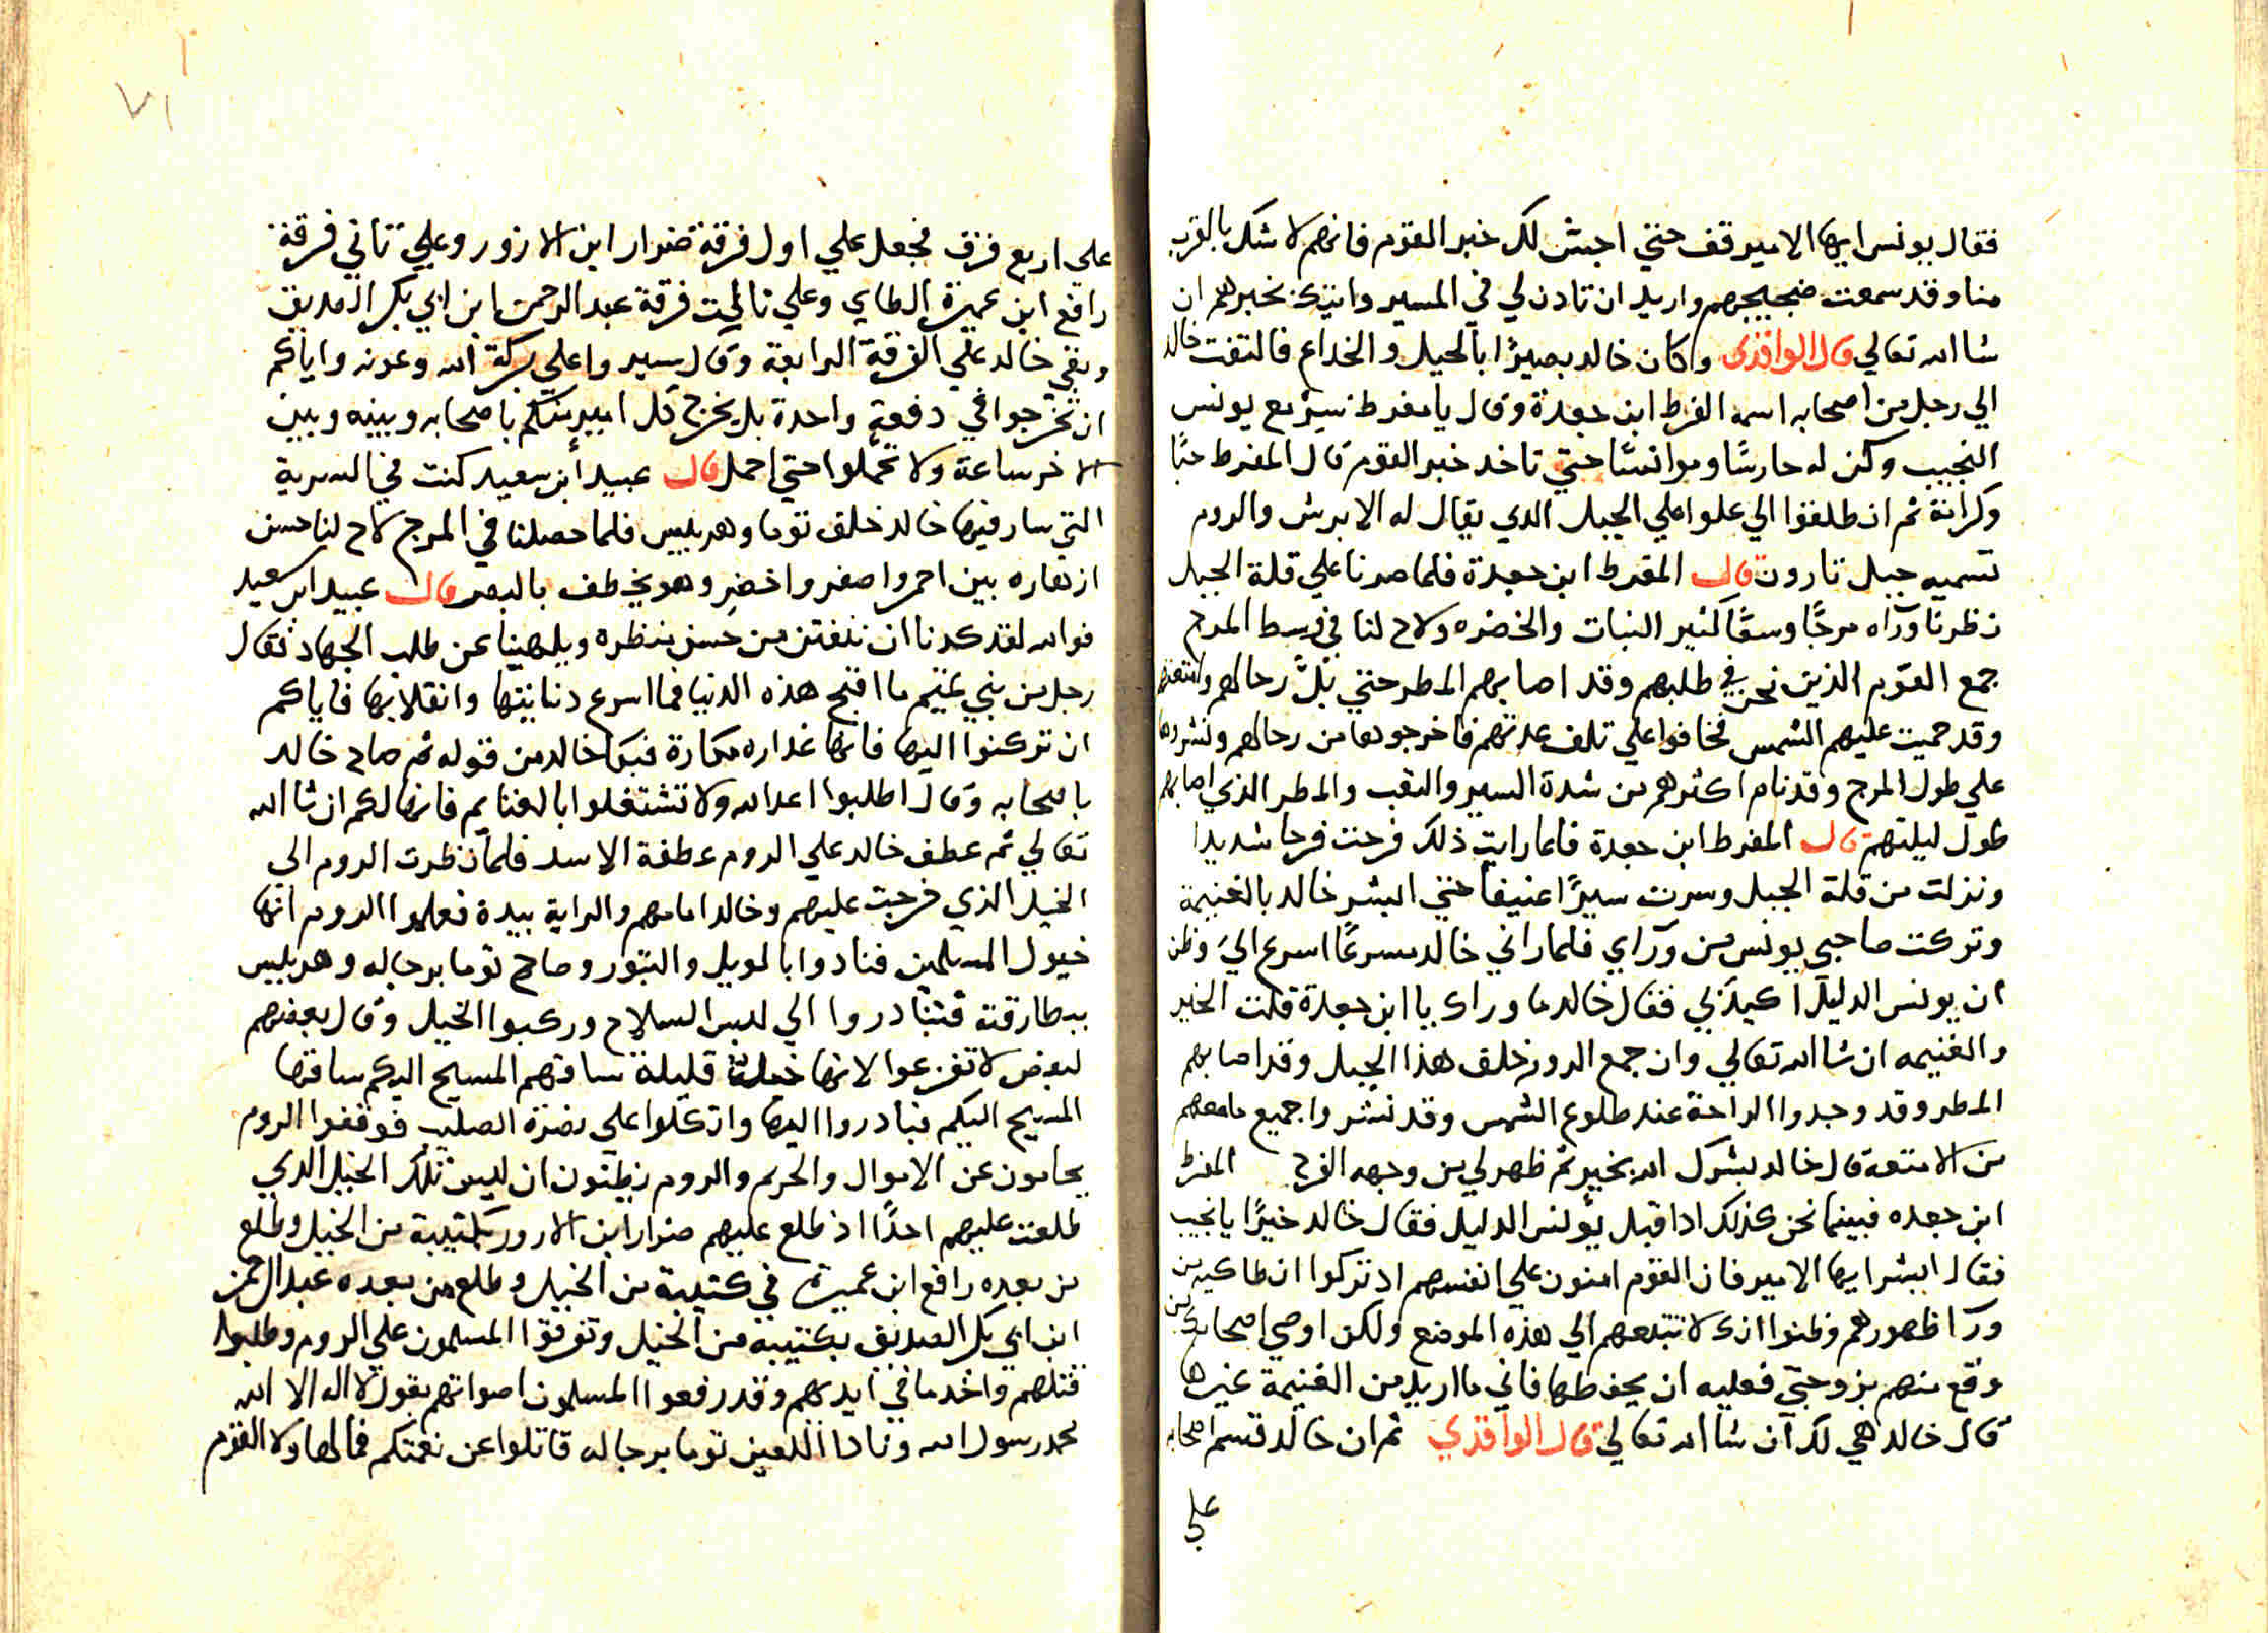 فقال يونس ايها الامير قف حتي اجش لك خبر القوم فانهم لا شك بالقرب
منا وقد سمعت ضجيجهم واريد ان تادن لي في المسير واتيك بخبرهم ان
شا الله تعالي قال الواقدي وكان خالد بصيرًا بالحيل والخداع فالتفت خالد
الي رجل من اصحابه اسمه المفرط ابن جعدة وقال يا مفرط سير مع يونس
النجيب وكن له حارسًا وموانسًا حتي تاخد خبر القوم قال المفرط حبًا
وكرامة ثم انطلقوا الي علوا علي الجبل الدي يقال له الابرش والروم
تسميه جبل تارون قال المفرط ابن جعدة فلما صرنا علي قلة الجبل
نظرنا وراه مرجًا وسعًا كثير النبات والخضره ولاح لنا في وسط المرج
جمع القوم الذين نحن في طلبهم وقد اصابهم المطر حتي بلّ رحالهم وامتعتهم
وقد حميت عليهم الشمس فخافوا علي تلف عدتهم فاخرجوها من رحالهم ونشروها
علي طول المرج وقد نام اكثرهم من شدة السير والتعب والمطر الذي اصابهم
طول ليلتهم قال المفرط ابن جعدة فلما رايت ذلك فرحت فرحا شديدا
ونزلت من قلة الجبل وسرت سيرًا عنيفا حتي ابشر خالد بالغنيمة
وتركت صاحبي يونس من وراي فلما راني خالد مسرعًا اسرع اليّ وظن
ان يونس الدليل اكيد بي فقال خالد ما وراك يا ابن جعدة قلت الخير
والغنيمه ان شا الله تعالي وان جمع الروم خلف هذا الجبل وقد اصابهم
المطر وقد وجدوا الراحة عند طلوع الشمس وقد نشروا جميع مامعهم
من الامتعة قال خالد بشرك الله بخير ثم ظهر لي من وجهه الفرح المفرط
ابن جعده فبينما نحن كذلك اد اقبل يونس الدليل فقال خالد خيرًا يا نجيب
فقال ابشر ايها الامير فان القوم امنون علي انفسهم اد تركوا انطاكيه من
ورا ظهورهم وظنوا انك لا تتبعهم الي هذه الموضع ولكن اوصي اصحابك من
وقع منهم بزوجتي فعليه ان يحفظها فاني ما اريد من الغنيمة غيرها
قال خالد هي لك ان شا الله تعالي قال الواقدي ثم ان خالد قسم اصحابه
علي
٧١
علي اربع فرق فجعل علي اول فرقة ضرار ابن الازور وعلي تاني فرقة
رافع ابن عميرة الطاي وعلي تالت فرقة عبد الرحمن ابن ابي بكر الصديق
وبقي خالد علي الفرقة الرابعة وقال سيروا علي بركة الله وعونه واياكم
ان تخرجوا في دفعة واحدة بل يخرج كل امير منكم باصحابه وبينه وبين
الاخر ساعة ولا تحملوا حتي احمل قال عبيد ابن سعيد كنت في السرية
التي سار فيها خالد خلف توما وهربيس فلما حصلنا في المرج لاح لنا حسن
ازهاره بين احمر واصفر واخضر وهو يخطف بالبصر قال عبيد ابن سعيد
فوالله لقد كدنا ان نفتتن من حسن منظره ويلهينا عن طلب الجهاد فقال
رجل من بني تميم ما اقبح هذه الدنيا فما اسرع دنايتها وانقلابها فاياكم
ان تركنوا اليها فانها غداره مكارة فبكا خالد من قوله ثم صاح خالد
باصحابه وقال اطلبوا اعدا الله ولا تشتغلوا بالغنايم فانها لكم ان شا الله
تعالي ثم عطف خالد علي الروم عطفة الاسد فلما نظرت الروم الي
الخيل الذي خرجت عليهم وخالد امامهم والراية بيدة فعلموا الروم انها
خيول المسلمين فنادوا بالويل والتبور وصاح توما برجاله وهربيس
ببطارقته فتبادروا الي لبس السلاح وركبوا الخيل وقال بعضهم
لبعض لا تفزعوا لانها قليلة ساقهم المسيح اليكم ساقها
المسيح اليكم فبادروا اليها واتكلوا علي نصرة الصليب فوقفوا الروم
يحامون عن الاموال والحريم والروم يظنون ان ليس تلك الخيل الدي
طلعت عليهم احدًا اذ طلع عليهم ضرار ابن الازور بكتيبة من الخيل وطلع
من بعده رافع ابن عميرة في كتيبة من الخيل وطلع من بعده عبد الرحمن
ابن ابي بكر الصديق بكتيبه من الخيل وتفرقوا المسلمون علي الروم وطلبوا
قتلهم واخد ما في ايديهم وقد رفعوا المسلمون اصواتهم بقول لا اله الا الله
محمد رسول الله ونادا اللعين توما برجاله قاتلوا عن نعمتكم فمالها ولا القوم